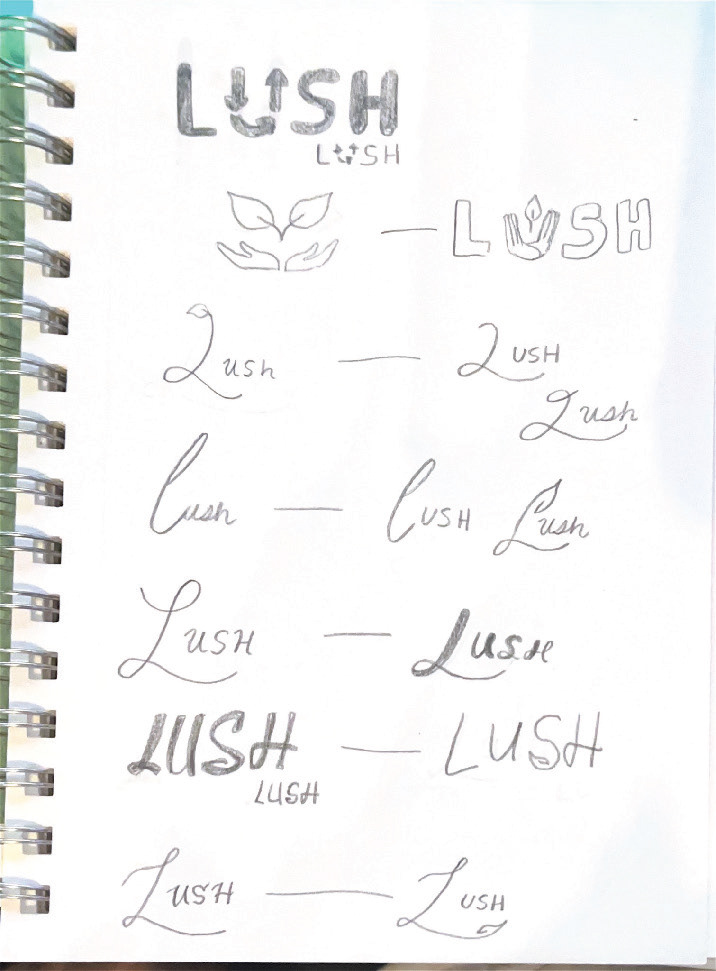 LUSH
LUSH
LUSH
Lush LUSH
Lush
Lush LUSH Lush
LUSH LUSH
LUSH LUSH
LUSH
LUSH LUSH